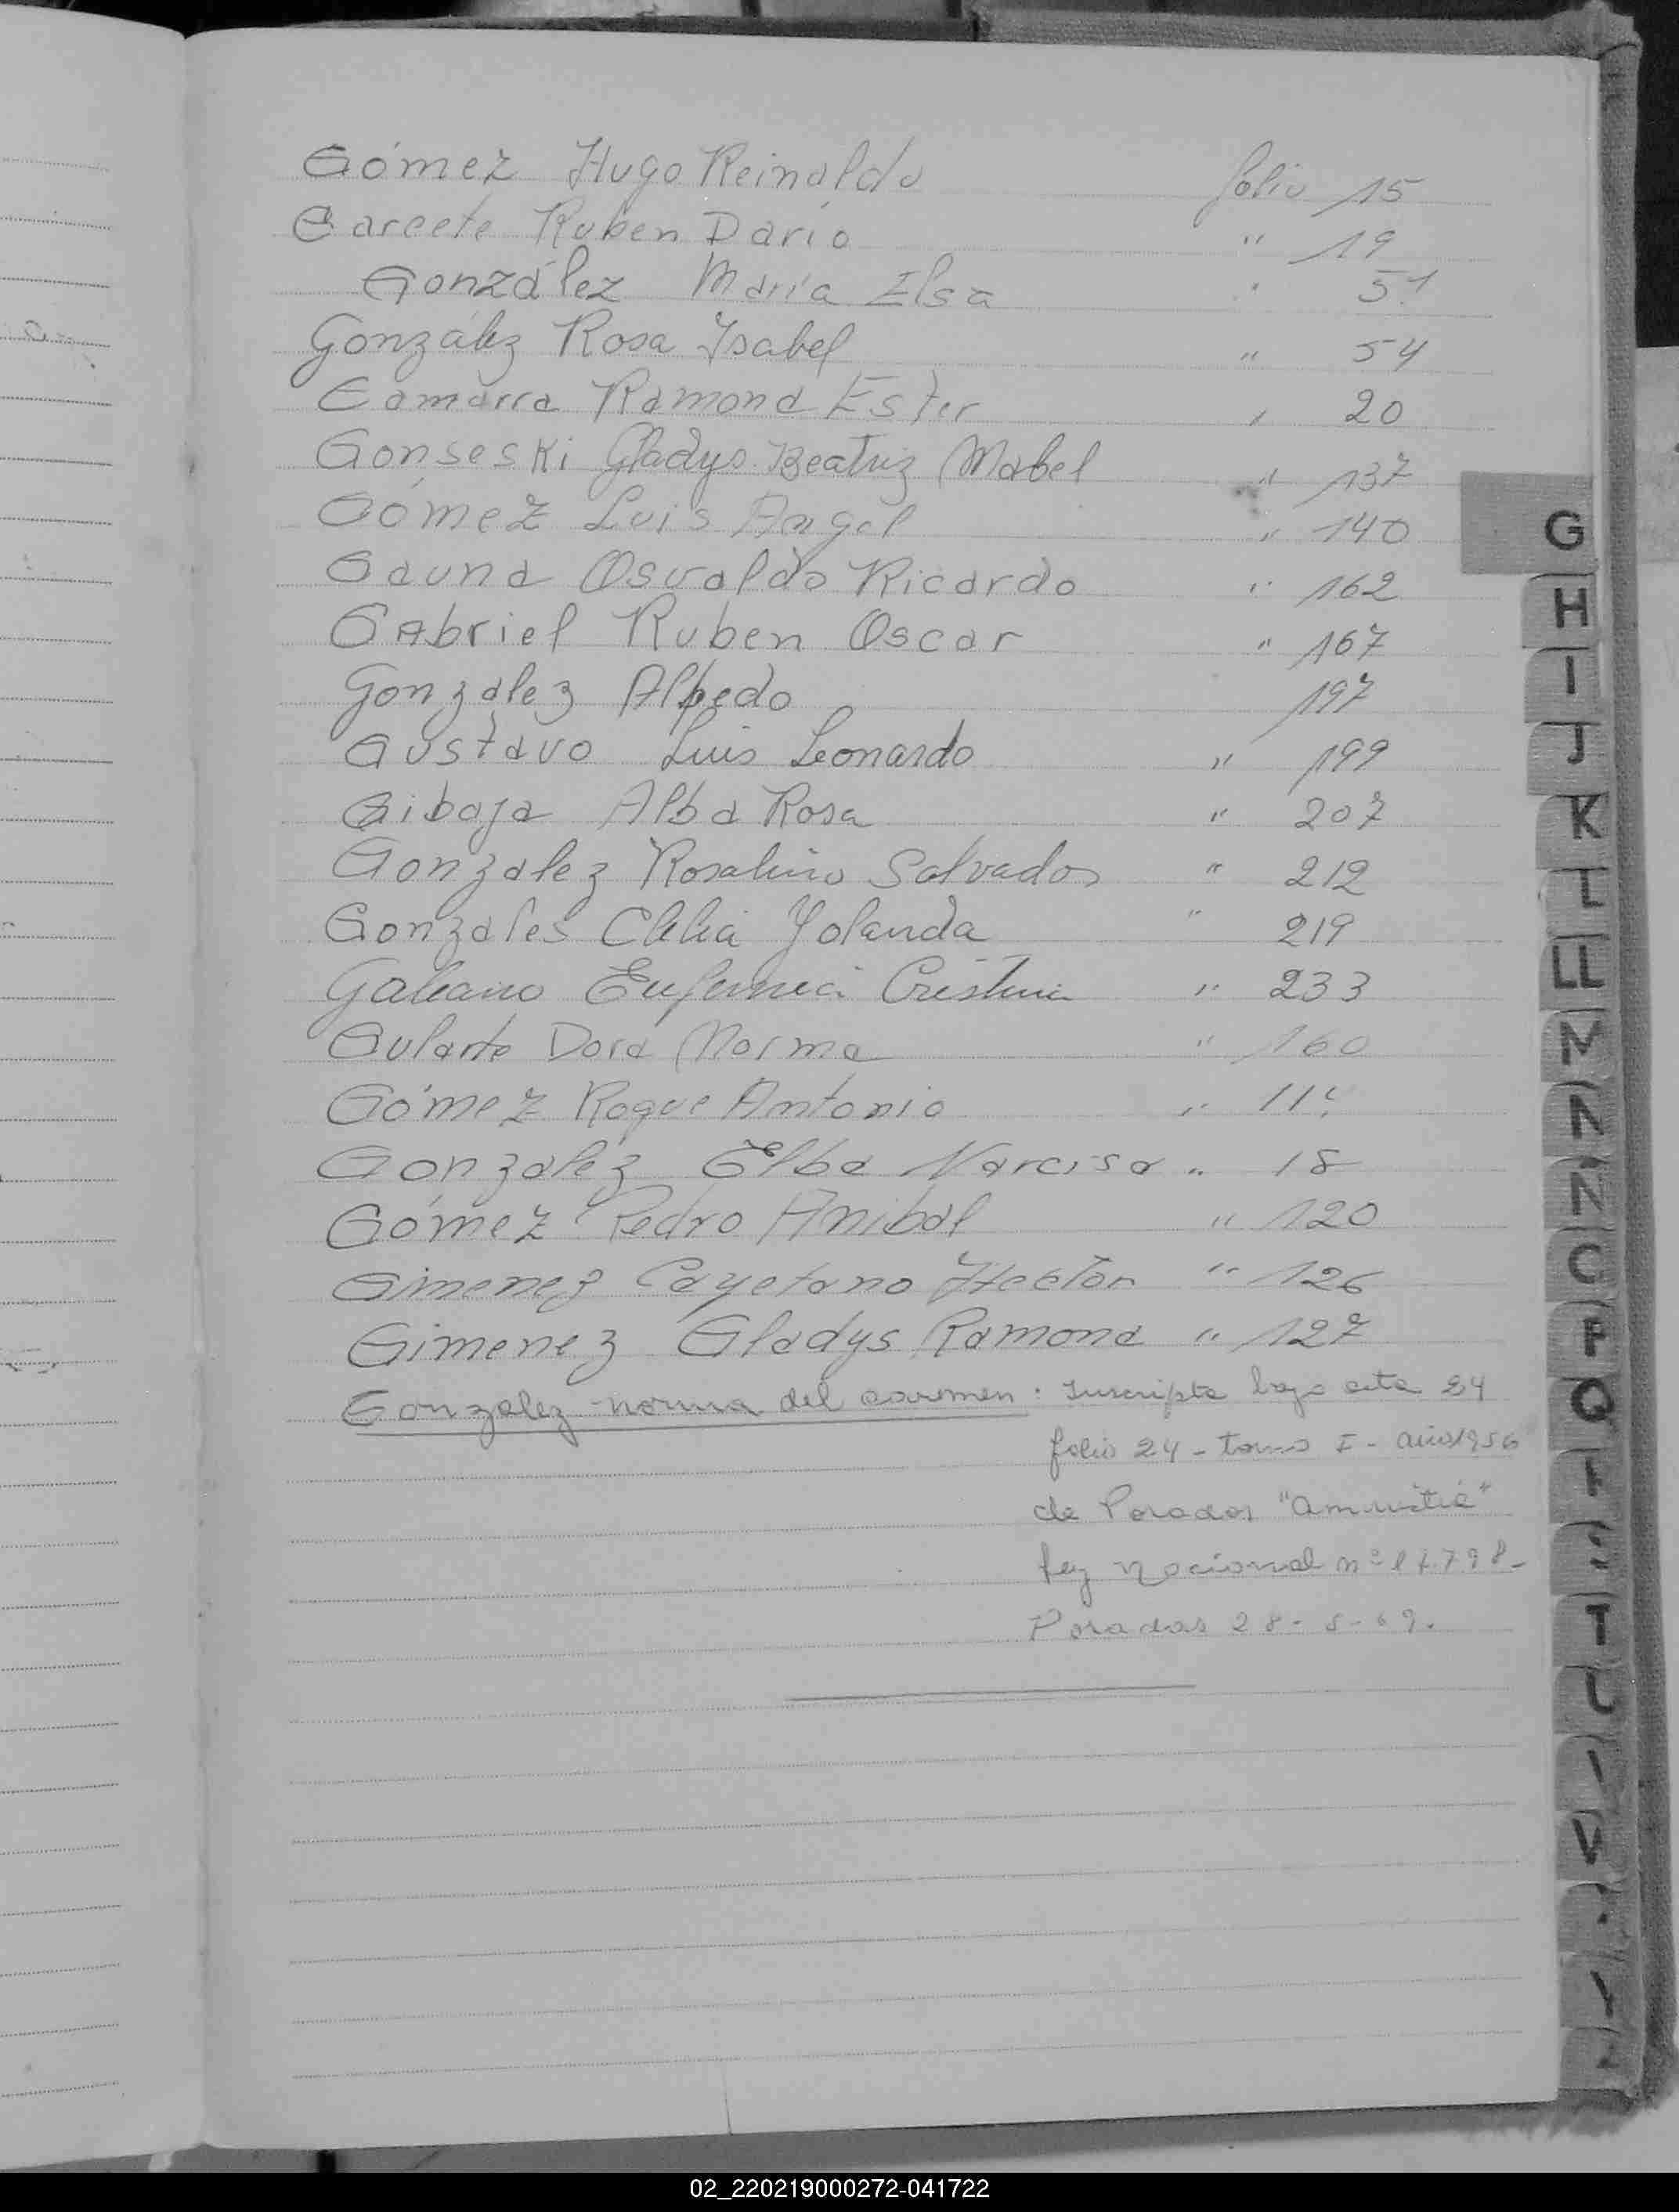 Gómez Hugo Reinaldo folio 15
Garcete Ruben Dario " 19
González María Elsa " 51
González Rosa Ysabel " 54
Gamarra Ramona Ester " 20
Gonseski Gladys Beatriz Mabel " 137
Gómez Luis Angel " 140
Gauna Osvaldo Ricardo " 162
GAbriel Ruben Oscar " 167
Gonzalez 197
Gustavo Luis Leonardo " 199
Gibaja Alba Rosa " 207
Gonzalez Rosalino Salvador " 212
Gonzales Clelia Yolanda " 219
Galeano Eufemia Cristina " 233
Gularte Dora Norma " 160
Gómez Roque Antonio "
Gonzalez Elba Narcisa " 18
Gómez Pedro Anibal " 120
Gimenez Cayetano Hector " 126
Gimenez Gladys Ramona " 127
Gonzalez norma del carmen: Inscripta bajo acta 24
folio 24 - tomo I - año 1956
de Posadas "amnistia"
ley nacional nº
Posadas 28-5-69.
G
H
I
J
K
L
LL
M
N
Ñ
P
Q
T
V
02_220219000272-041722